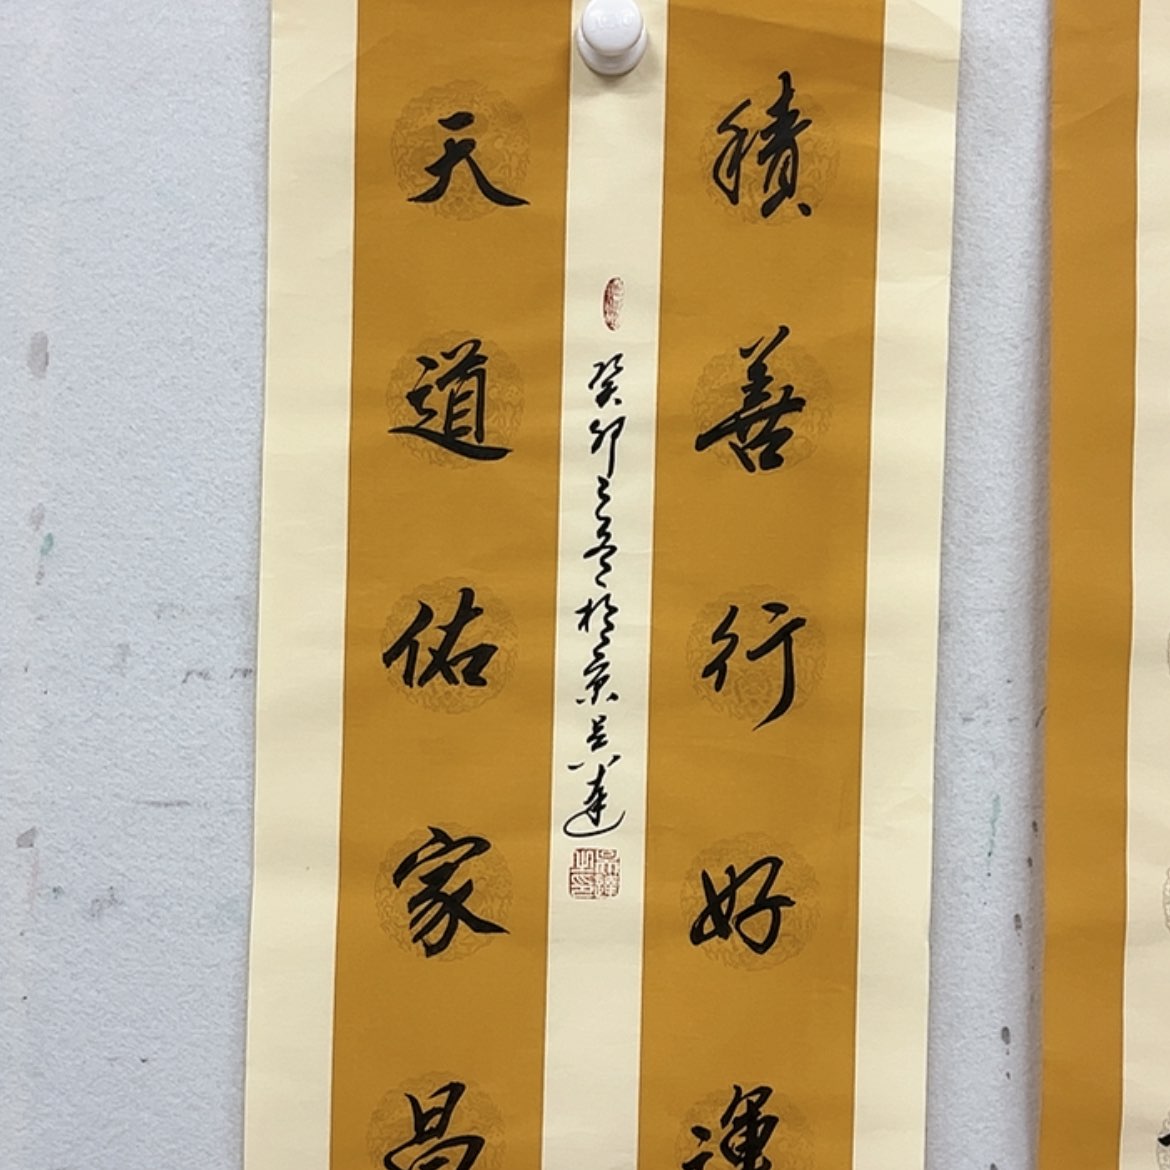 積善行好運
天道佑家昌
癸卯之冬於京呂達